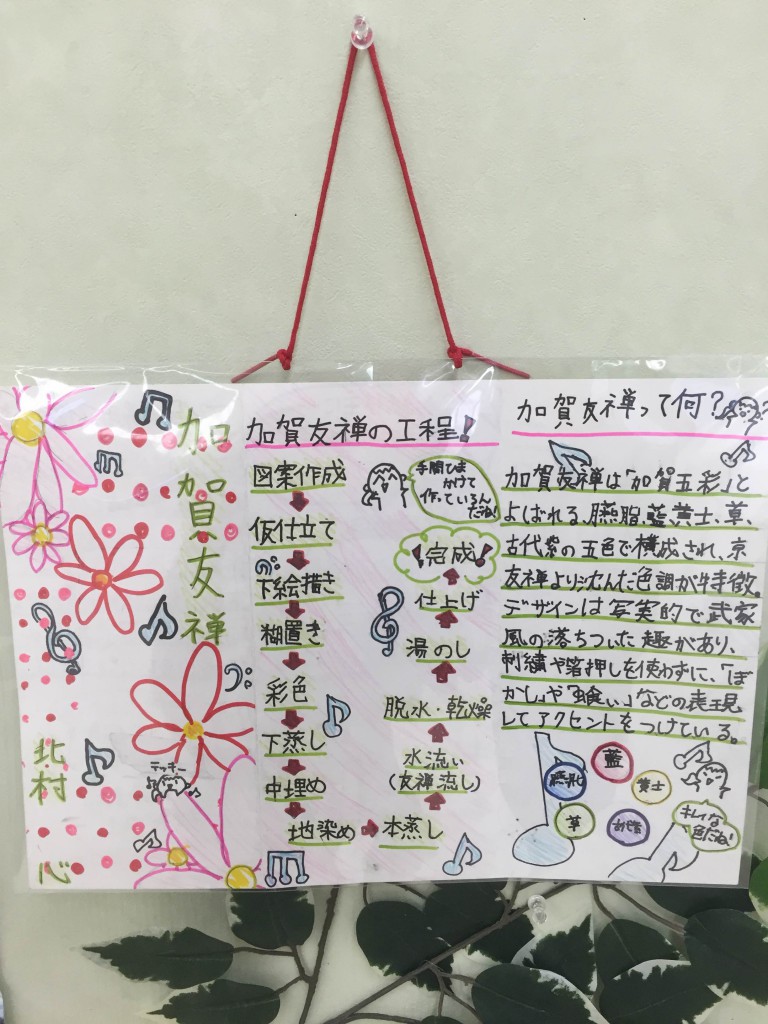 加賀友禅
北村 心
テッキー
加賀友禅の工程!
図案作成
仮仕立て
下絵描き
糊置き
彩色
下蒸し
中埋め
地染め
本蒸し
水流い
(友禅流し)
脱水・乾燥
湯のし
仕上げ
完成!
手間ひま
かけて
作っているん
だね!
加賀友禅って何?
加賀友禅は「加賀五彩」と
よばれる、臙脂、藍、黄土、草、
古代紫の五色で構成され、京
友禅より沈んだ色調が特徴。
デザインは写実的で武家
風の落ちついた趣があり、
刺繍や箔押しを使わずに、「ぼ
かし」や「虫喰い」などの表現
してアクセントをつけている。
臙脂
藍
黄土
草
古代紫
キレイな
色だね!